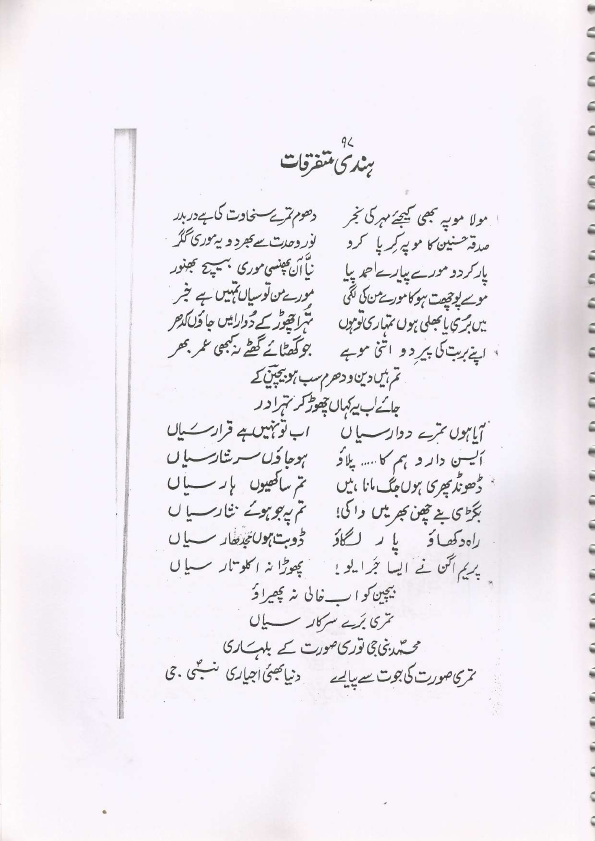 ۹۷
ہندی متفرقات
مولا موپہ بھی کیجئے مہر کی نجر دھوم تمرے سخاوت کی ہے در بدر
صدقہ حسنین کا موپہ کر پا کرو نور وحدت سے بھردو یہ موری گگر
پار کردو مورے پیارے احمد پیا نیّا آن پھنسی موری بیچ بھنور
موسے پوچھت ہو کا مورے من کی لگی مورے من تو سیاں تمہیں ہے خبر
میں بُری یا بھلی ہوں تمہاری تو ہوں تمہرا چھوڑ کے دُوار ایس جاؤں کدھر
اپنے پریت کی پیر دو اتنی موہے جو گھٹائے گھٹے نہ کبھی عمر بھر
تم ہیں دین و دھرم سب ہو بیچین کے
جائے اب یہ کہاں چھوڑ کر تہرا در
آیا ہوں تمرے دوار سیاں اب تو نہیں ہے قرار سیاں
ایسن دارو ہم کا ..... پلاؤ ہو جاؤں سرشار سیاں
ڈھونڈ پھری ہوں جگ مانا ہیں تم سا کھیون ہار سیاں
بگڑی بنے چھن بھر میں وا کی! تم پہ جو ہوئے نثار سیاں
راہ دکھاؤ پار لگاؤ ڈوبت ہوں منجدھار سیاں
پریم اگن نے ایسا جَرایو! پھوڑا نہ اکلو تار سیاں
بیچین کو اب خالی نہ پھیراؤ
تمری بَرے سرکار سیاں
محمد نبی جی توری صورت کے بلہاری
تمری صورت کی جوت سے پیارے دنیا بھئی اجیاری نبیؐ جی